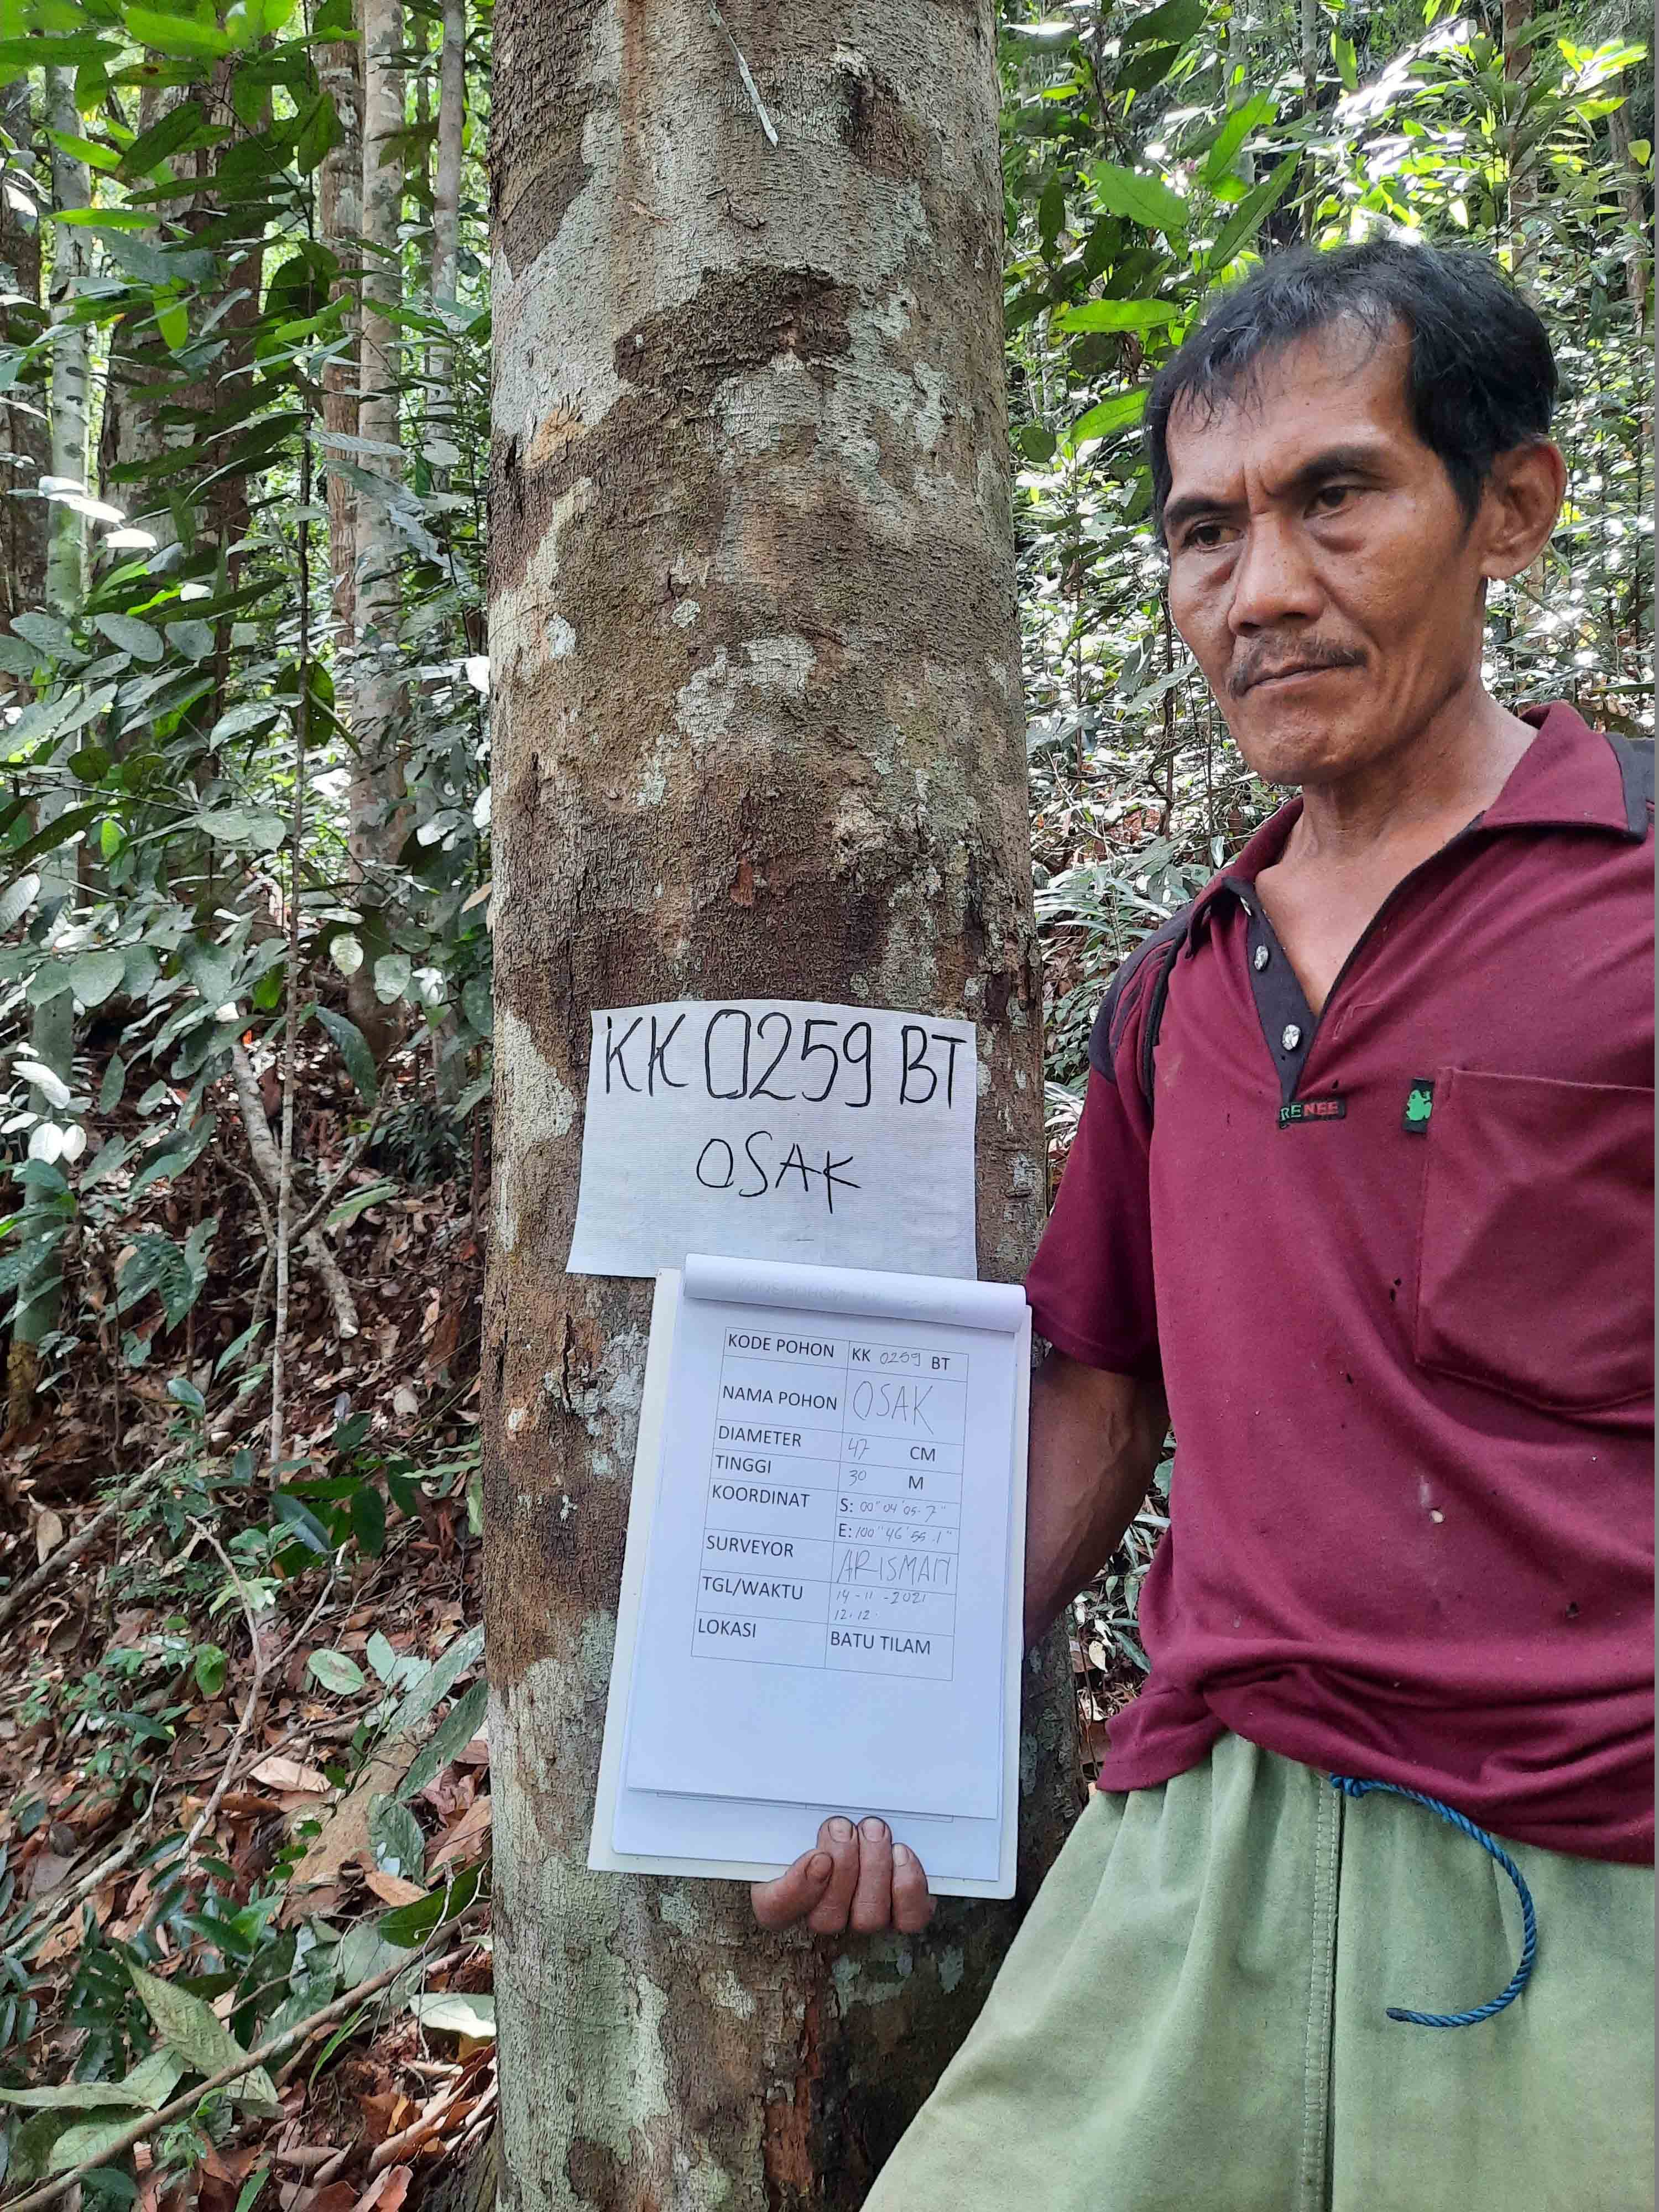 KK 0259 BT
OSAK
KODE POHON KK 0259 BT
NAMA POHON OSAK
DIAMETER 47 CM
TINGGI 30 M
KOORDINAT S: 00" 04' 05.7"
E: 100" 46' 55.1"
SURVEYOR ARISMAN
TGL/WAKTU 14-11-2021
12.12.
LOKASI BATU TILAM
RENEE